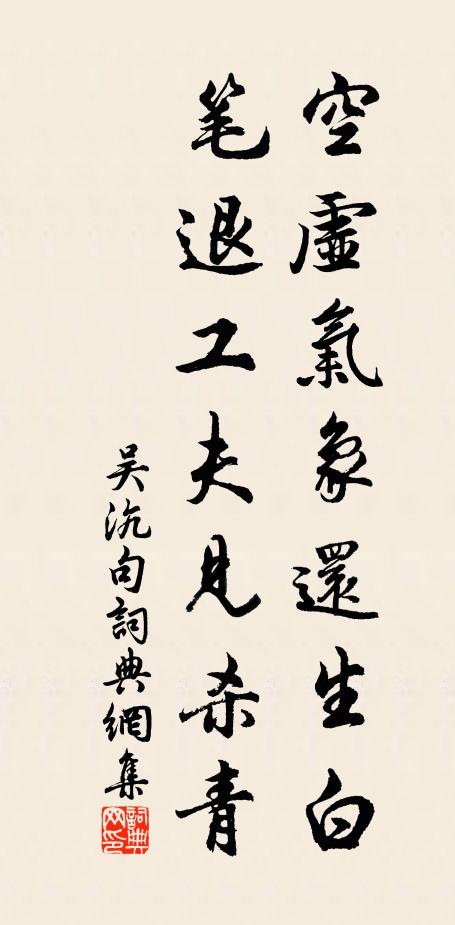 空虛氣象還生白
笔退工夫見杀青
吴沆句詞典網集
詞典网印